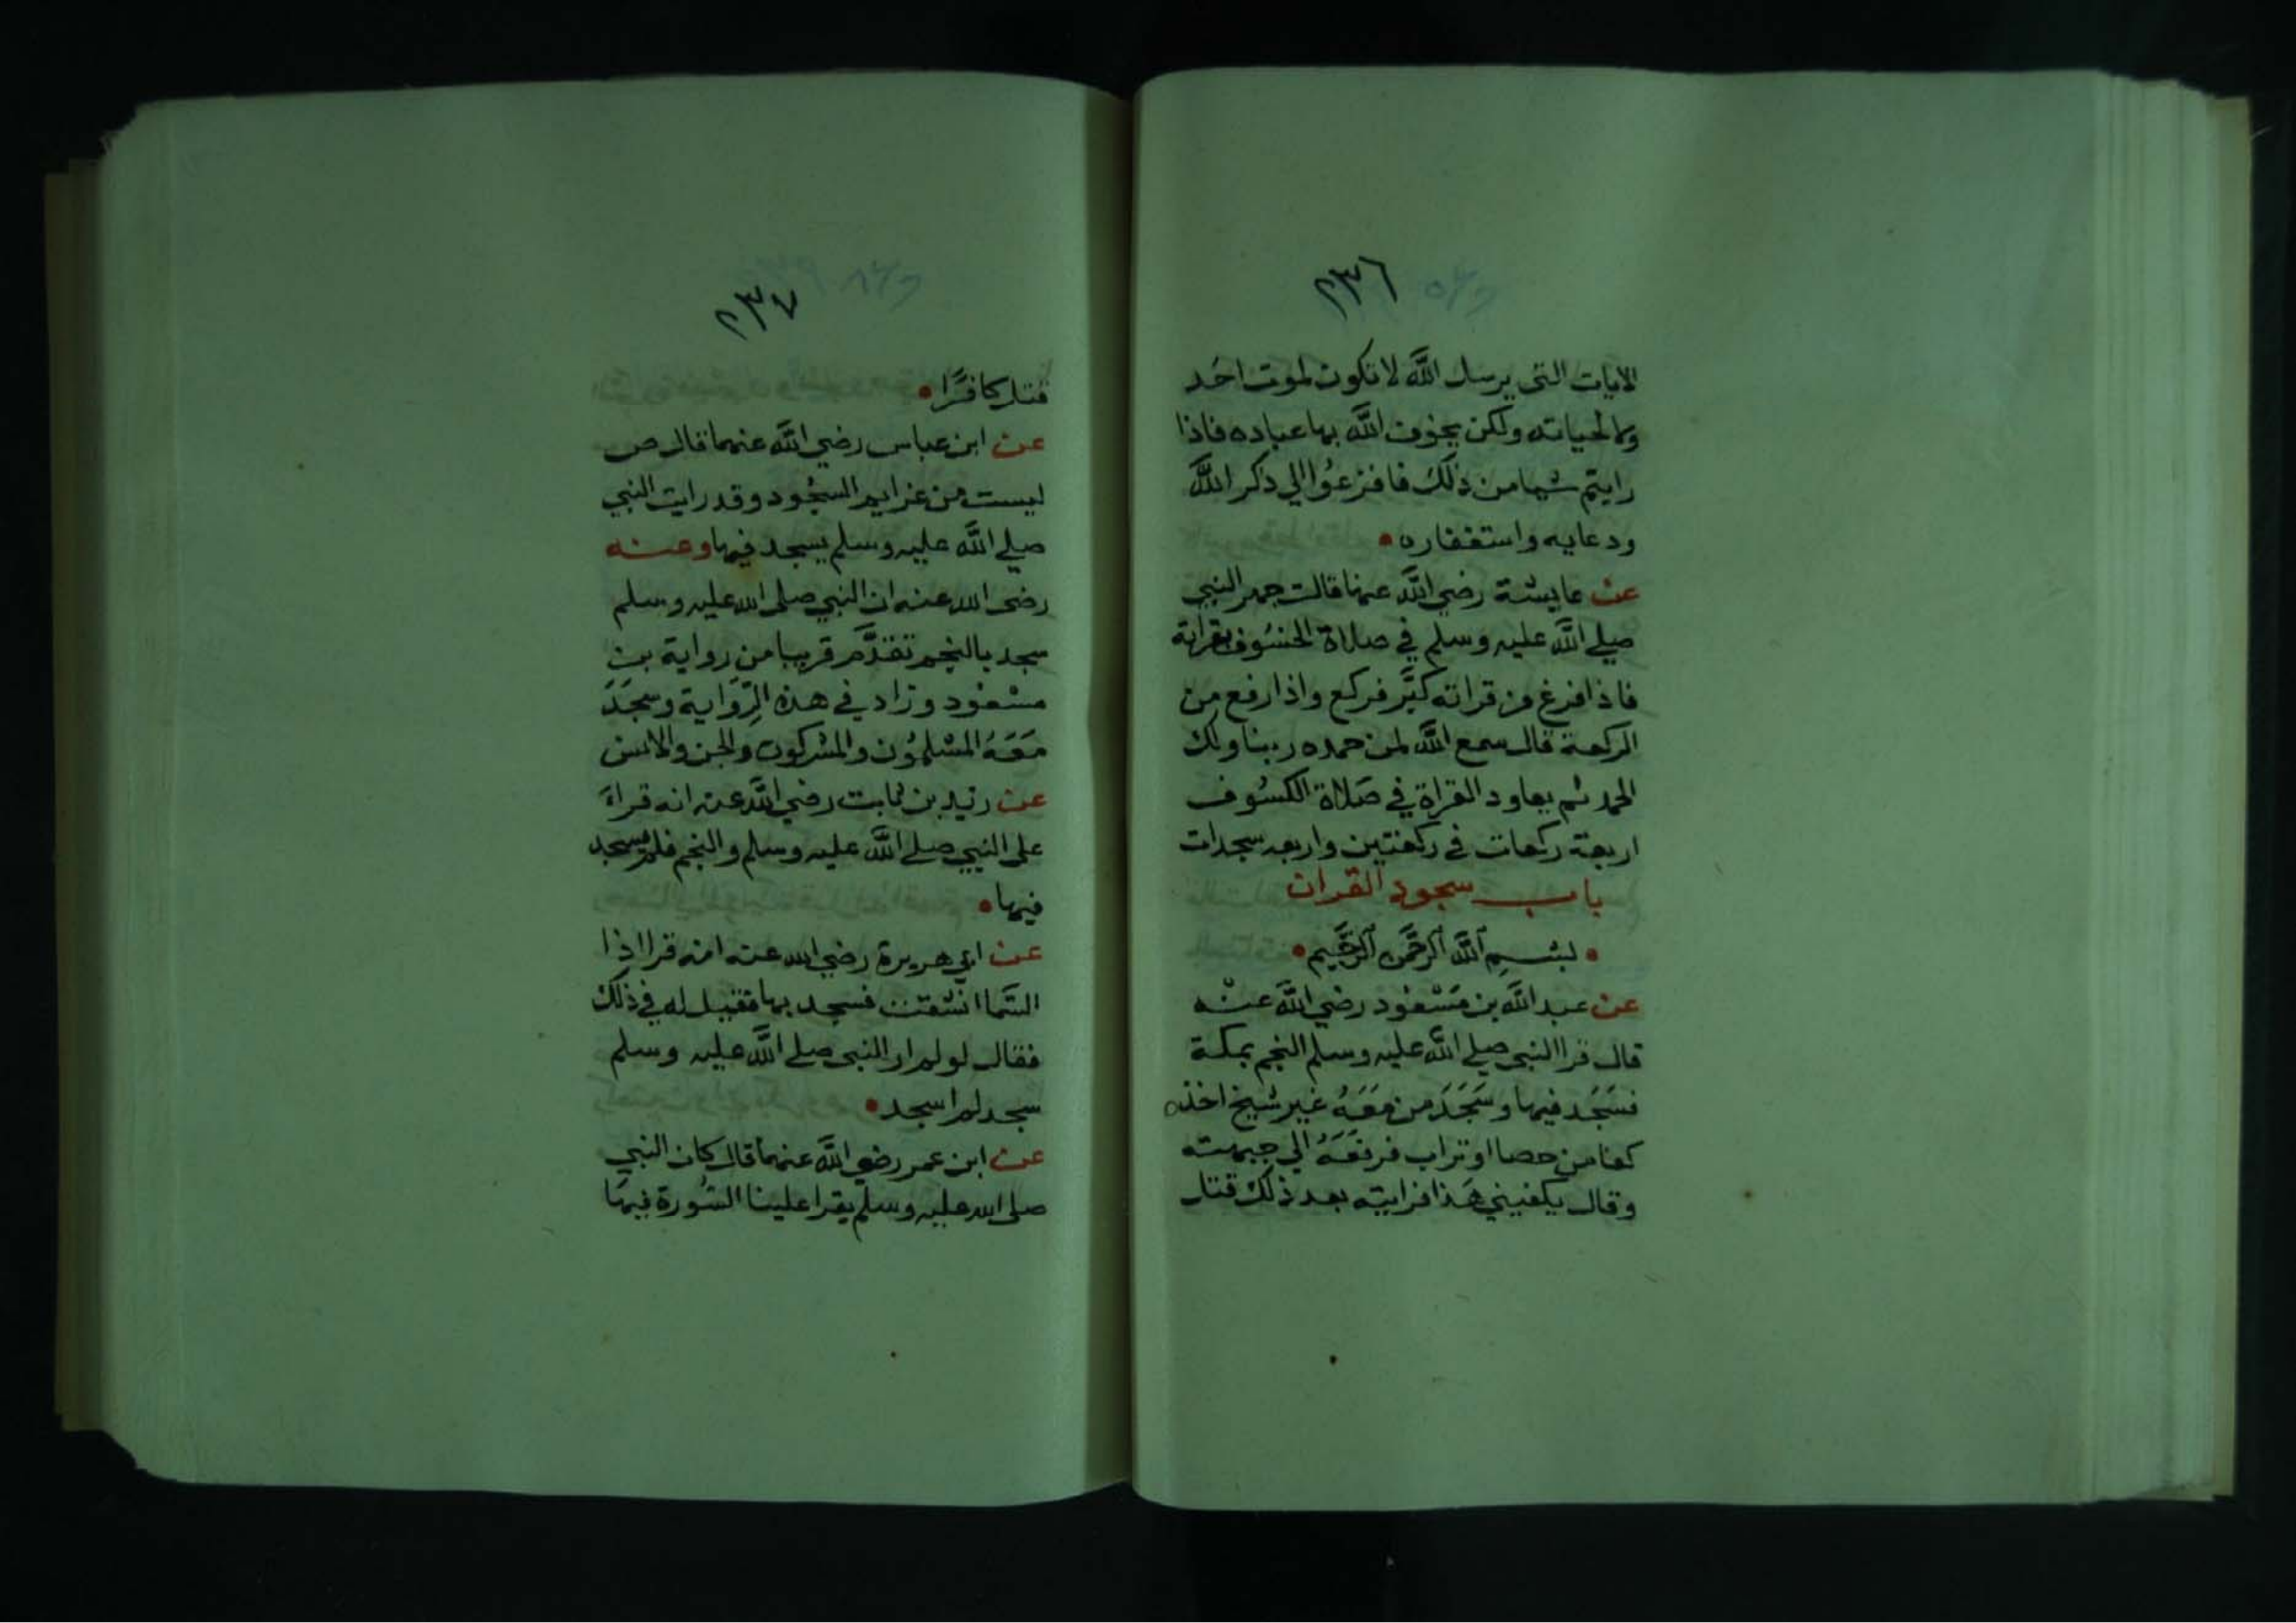 ٢٣٦
الايات التى يرسل الله لا تكون لموت احد
ولا لحياته ولكن يخوف الله بها عباده فاذا
رايتم شيا من ذلك فافزعوا الي ذكر الله
ودعايه واستغفاره
عن عايشة رضي الله عنها قالت جهر النبي
صلي الله عليه وسلم في صلاة الخسوف بقراته
فاذا فرغ من قراته كبر فركع واذا رفع من
الركعة قال سمع الله لمن حمده ربنا ولك
الحمد ثم يعاود القراة في صلاة الكسوف
اربعة ركعات في ركعتين واربعه سجدات
باب سجود القران
بسم الله الرحمن الرحيم
عن عبد الله بن مسعود رضي الله عنه
قال قرا النبي صلي الله عليه وسلم النجم بمكة
فسجد فيها وسجد من معه غير شيخ اخذ
كفا من حصا او تراب فرفعه الي جبهته
وقال يكفيني هذا فرايته بعد ذلك قتل
٢٣٧
قتل كافرا
عن ابن عباس رضي الله عنهما قال ص
ليست من عزايم السجود وقد رايت النبي
صلي الله عليه وسلم يسجد فيها وعنه
رضى الله عنه ان النبي صلى الله عليه وسلم
سجد بالنجم تقدم قريبا من رواية بن
مسعود وزاد في هذه الرواية وسجد
معه المسلمون والمشركون والجن والانس
عن زيد بن ثابت رضي الله عنه انه قراء
على النبي صلي الله عليه وسلم والنجم فلم يسجد
فيها
عن ابي هريرة رضي الله عنه انه قرا اذا
السما انشقت فسجد بها فقيل له في ذلك
فقال لو لم ار النبي صلي الله عليه وسلم
سجد لم اسجد
عن ابن عمر رضي الله عنهما قال كان النبي
صلى الله عليه وسلم يقرا علينا السورة فيها